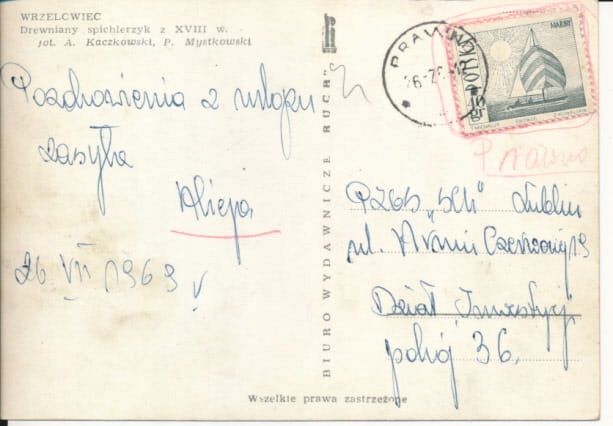 WRZELCWIEC
Drewniany spichlerzyk z XVIII w.
fot. A. Kaczkowski, P. Mystkowski
Pozdrowienia z
zasyła
Alicja
26 VII 1969
BIURO WYDAWNICZE RUCH
PRAWNO
26-7
MAZURY
15 gr
POLSKA
Prawno
Lublin
ul. Armii Czerwonej 19
Dział Inwestycji
pokój 36.
Wszelkie prawa zastrzeżone